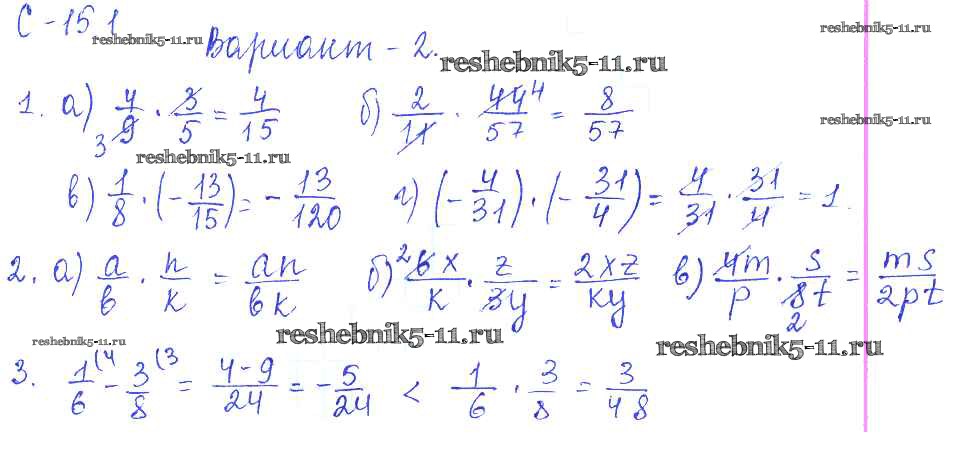 С-15 1
reshebnik5-11.ru
reshebnik5-11.ru
Вариант - 2.
reshebnik5-11.ru
1. а) 4/9 3 · 3/5 = 4/15 б) 2/11 · 44 4/57 = 8/57
reshebnik5-11.ru
reshebnik5-11.ru
в) 1/8 · (- 13/15) = - 13/120 г) (- 4/31) · (- 31/4) = 4/31 · 31/4 = 1.
2. а) a/в · n/k = an/вk б) 2 6x/k · z/3y = 2xz/ky в) 4m/p · s/8t 2 = ms/2pt
reshebnik5-11.ru
reshebnik5-11.ru
reshebnik5-11.ru
3. 1/6 (4 - 3/8 (3 = 4-9/24 = - 5/24 < 1/6 · 3/8 = 3/48